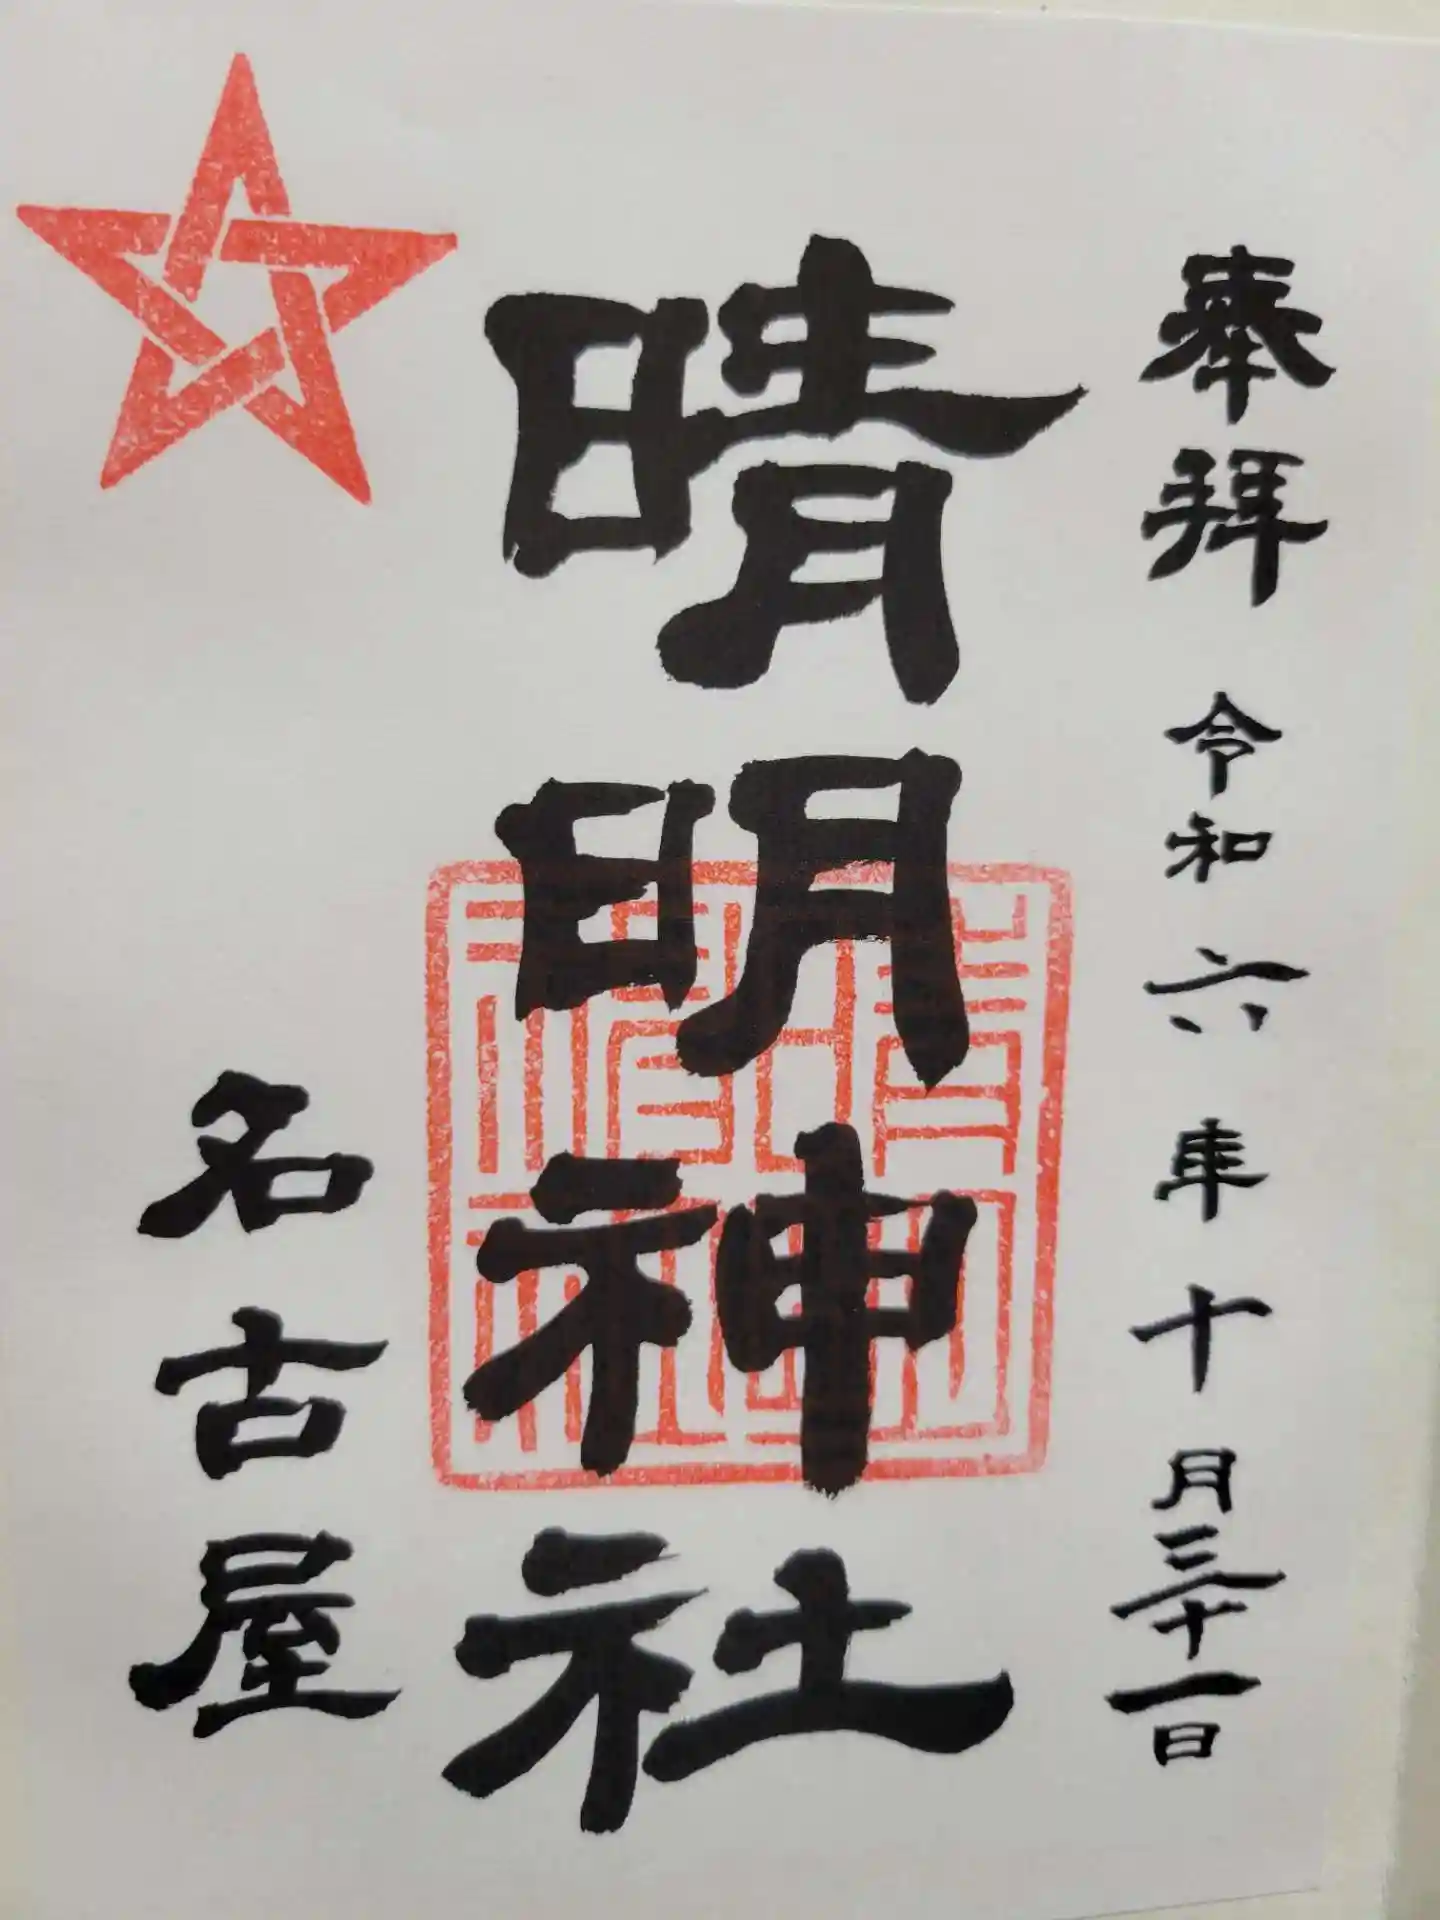 奉拜 令和六年十月三十一日
晴明神社
名古屋